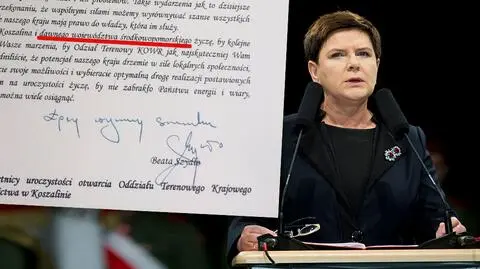 przekonaniu, że wspólnymi siłami możemy wyrównywać szanse wszystkich
naszego kraju mają prawo do władzy, która im służy.
Koszalina i dawnego województwa środkowopomorskiego życzę, by kolejne
Wasze marzenia, by Odział Terenowy KOWR jak najskuteczniej Wam
że potencjał naszego kraju drzemie w sile lokalnych społeczności,
swoje możliwości i wybieracie optymalną drogę realizacji postawionych
na uroczystości życzę, by nie zabrakło Państwu energii i wiary,
można wiele osiągnąć.
Beata Szydło
uroczystości otwarcia Oddziału Terenowego Krajowego
w Koszalinie